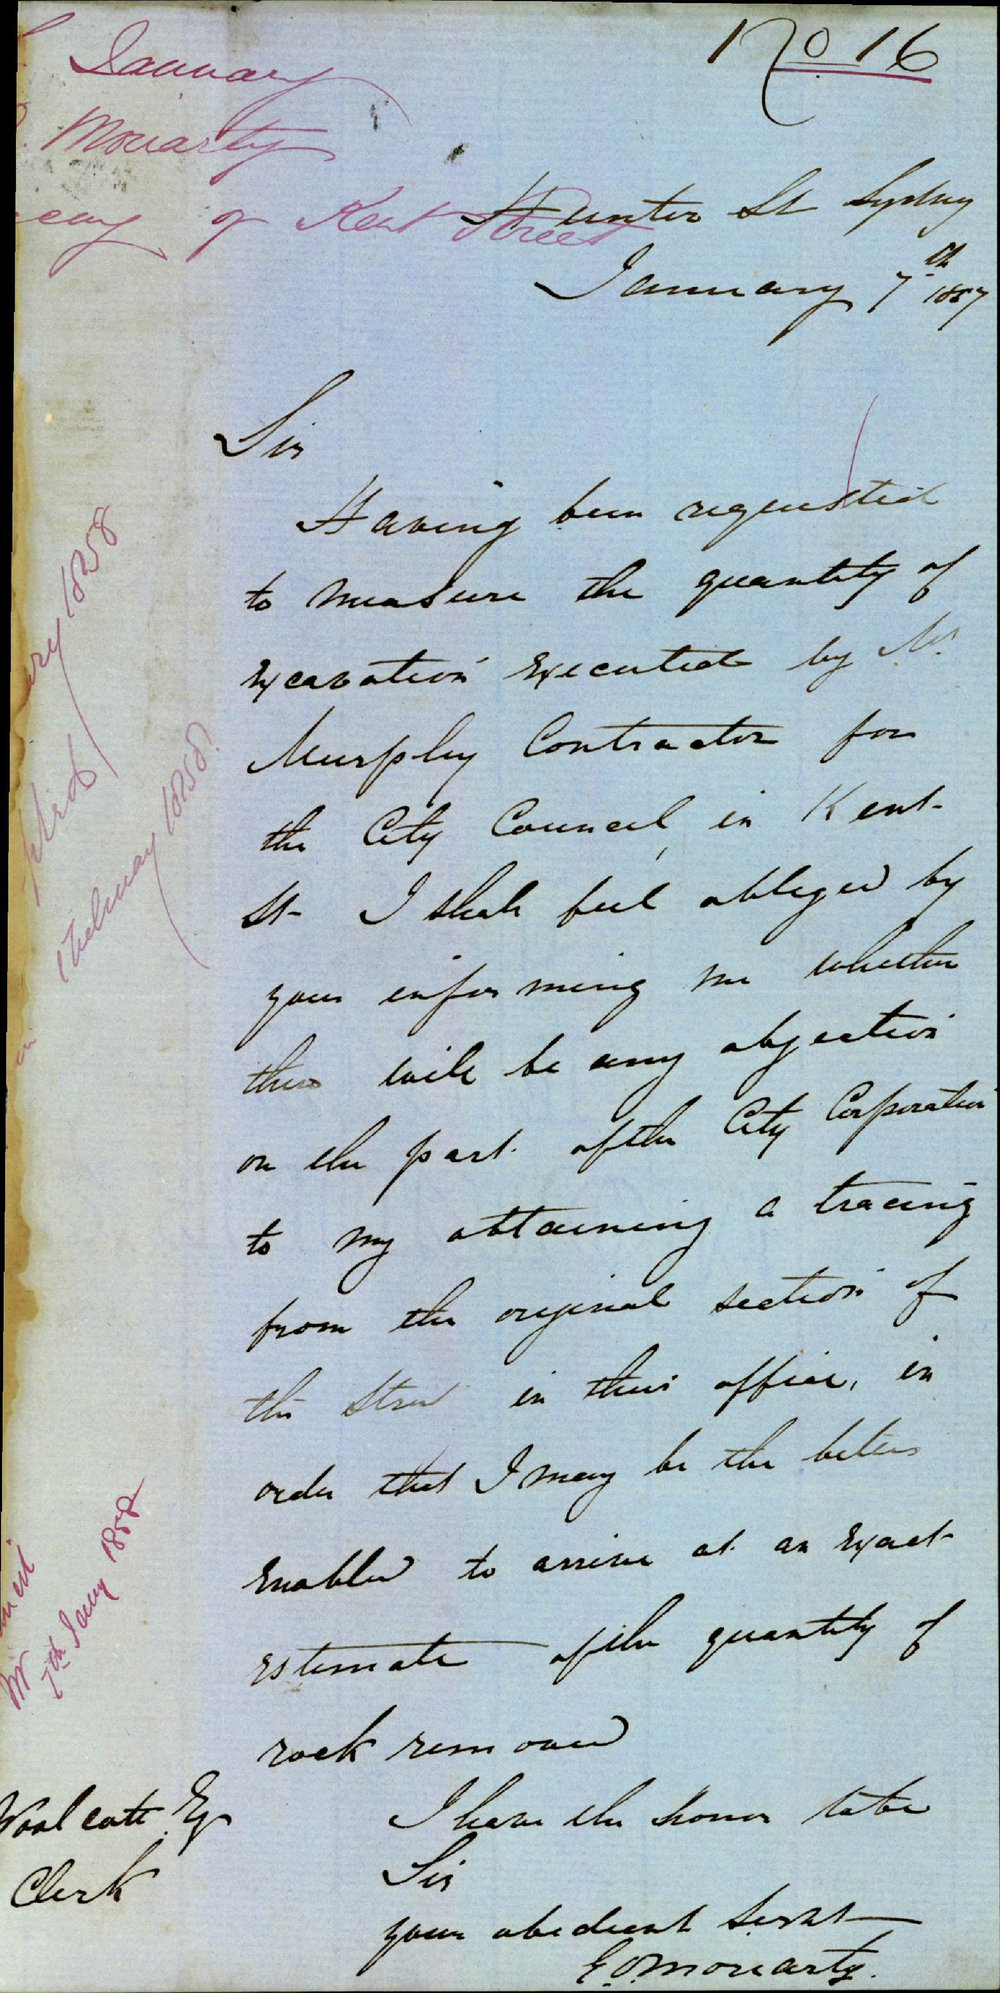 No 16
January
Moriarty
of Kent Street
Hunter St Sydney
January 7th 1857
Sir
Having been requested
to measure the quantity of
excavation executed by Mr
Murphy Contractor for
the City Council in Kent
St I shall feel obliged by
your informing me whether
there will be any objection
on the part of the City Corporation
to my obtaining a tracing
from the original section of
this Street in their office, in
order that I may be the better
enabled to arrive at an exact
estimate of the quantity of
rock removed
I have the honor to be
Sir
your obedient Servt
E.O. Moriarty.
Woolcott Esq
Clerk
ary 1858
February 1858.
7th Jany 1858